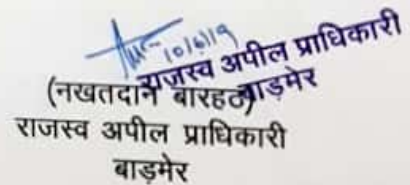 10/6/19
राजस्व अपील प्राधिकारी
बाड़मेर
(नखतदान बारहठ)
राजस्व अपील प्राधिकारी
बाड़मेर